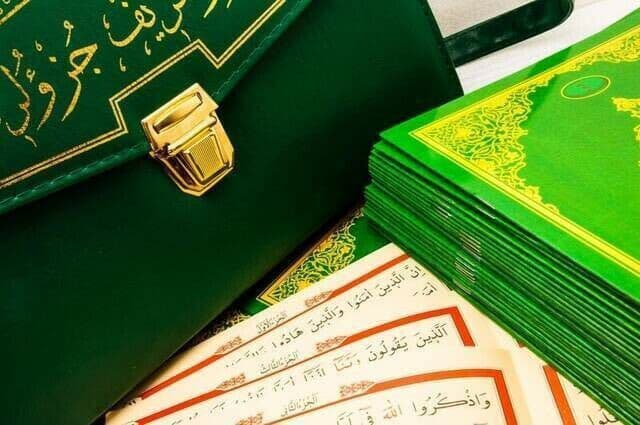 شريف
الجزء الأول
إِنَّ الَّذِينَ اٰمَنُوا وَالَّذِينَ هَادُوا
الجزء الثالث
اَلَّذِينَ يَقُولُونَ رَبَّنَا اِنَّنَا اٰمَنَّا
الجزء الثاني
وَاذْكُرُوا اللّٰهَ فِى